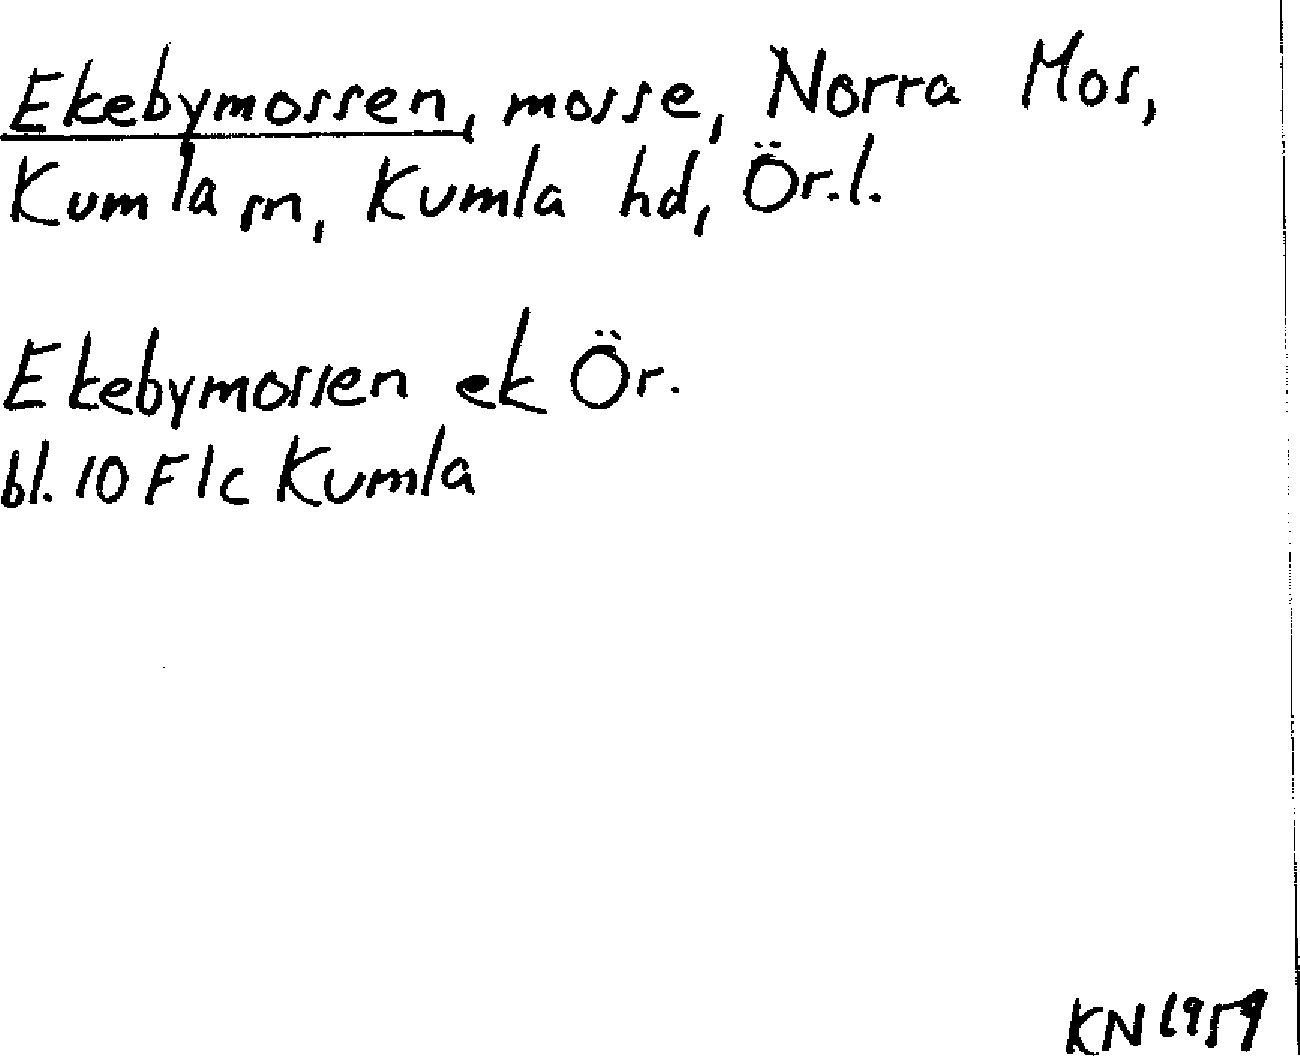 Ekebymossen, mosse, Norra Mos,
Kumla sn, Kumla hd, Ör.l.
Ekebymossen ek Ör.
bl. 10 F 1c Kumla
KN 1959